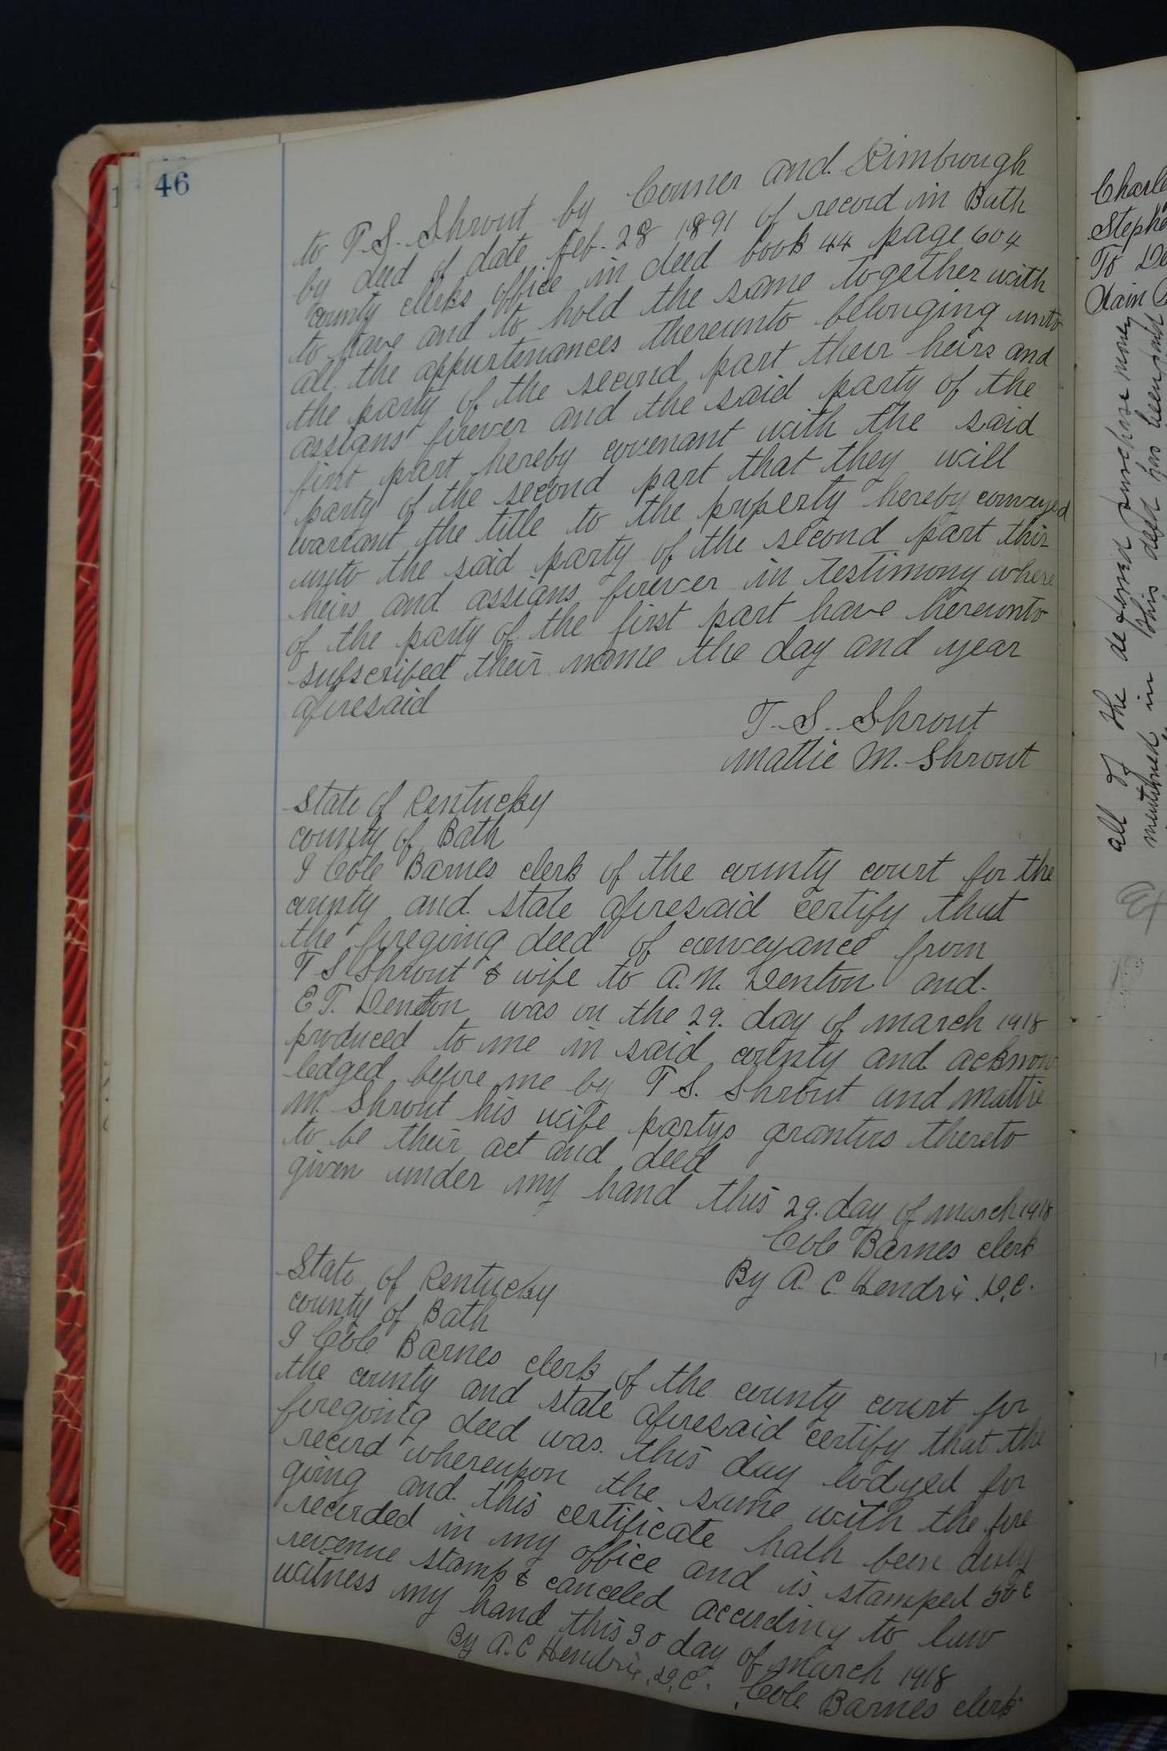 46
to T.S. Shrout by Conner and Kimbrough
by deed of date Feb. 28 1891 of record in Bath
county clerks office in deed book 44 page 604
to have and to hold the same together with
all the appurtenances thereunto belonging unto
the party of the second part their heirs and
assigns forever and the said party of the
first part hereby covenant with the said
party of the second part that they will
warrant the title to the property hereby conveyed
unto the said party of the second part thir
heirs and assigns forever in testimony where
of the party of the first part have hereunto
subscribed their name the day and year
aforesaid
T. S. Shrout
Mattie M. Shrout
State of Kentucky
county of Bath
I Cole Barnes clerk of the county court for the
county and state aforesaid certify that
the foregoing deed of conveyance from
T S Shrout & wife to A.M. Denton and
E T. Denton was on the 29. day of march 1918
produced to me in said county and acknow
ledged before me by T S. Shrout and mattie
M. Shrout his wife partys grantors thereto
to be their act and deed
given under my hand this 29. day of march 1918
Cole Barnes clerk
By A. C. Hendrix D.C.
State of Kentucky
county of Bath
I Cole Barnes clerk of the county court for
the county and state aforesaid certify that the
foregoing deed was this day lodged for
record whereupon the same with the fore
going and this certificate hath been duly
recorded in my office and is stamped 50¢
revenue stamp & canceled according to law
witness my hand this 30 day of march 1918
By A. C Hendrix D.C. Cole Barnes clerk
Charle
Stephe
To De
all of the deferred purchase money
mentioned in this deed has been paid